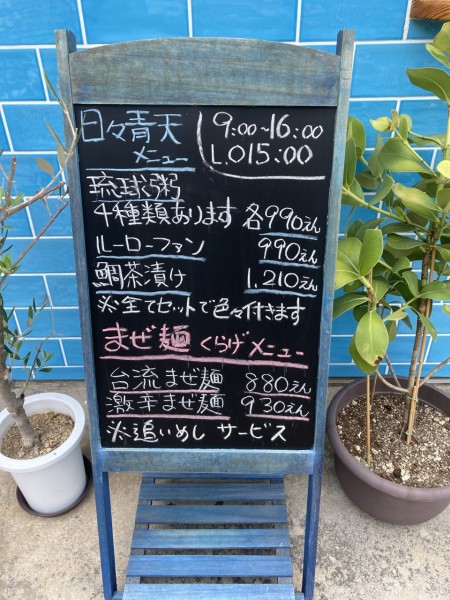 日々青天 9:00~16:00
メニュー L.O15:00
琉球粥
4種類あります 各990えん
ルーローファン 990えん
鯛茶漬け 1,210えん
※全てセットで色々付きます
まぜ麺 くらげメニュー
台流まぜ麺 880えん
激辛まぜ麺 930えん
※追いめし サービス